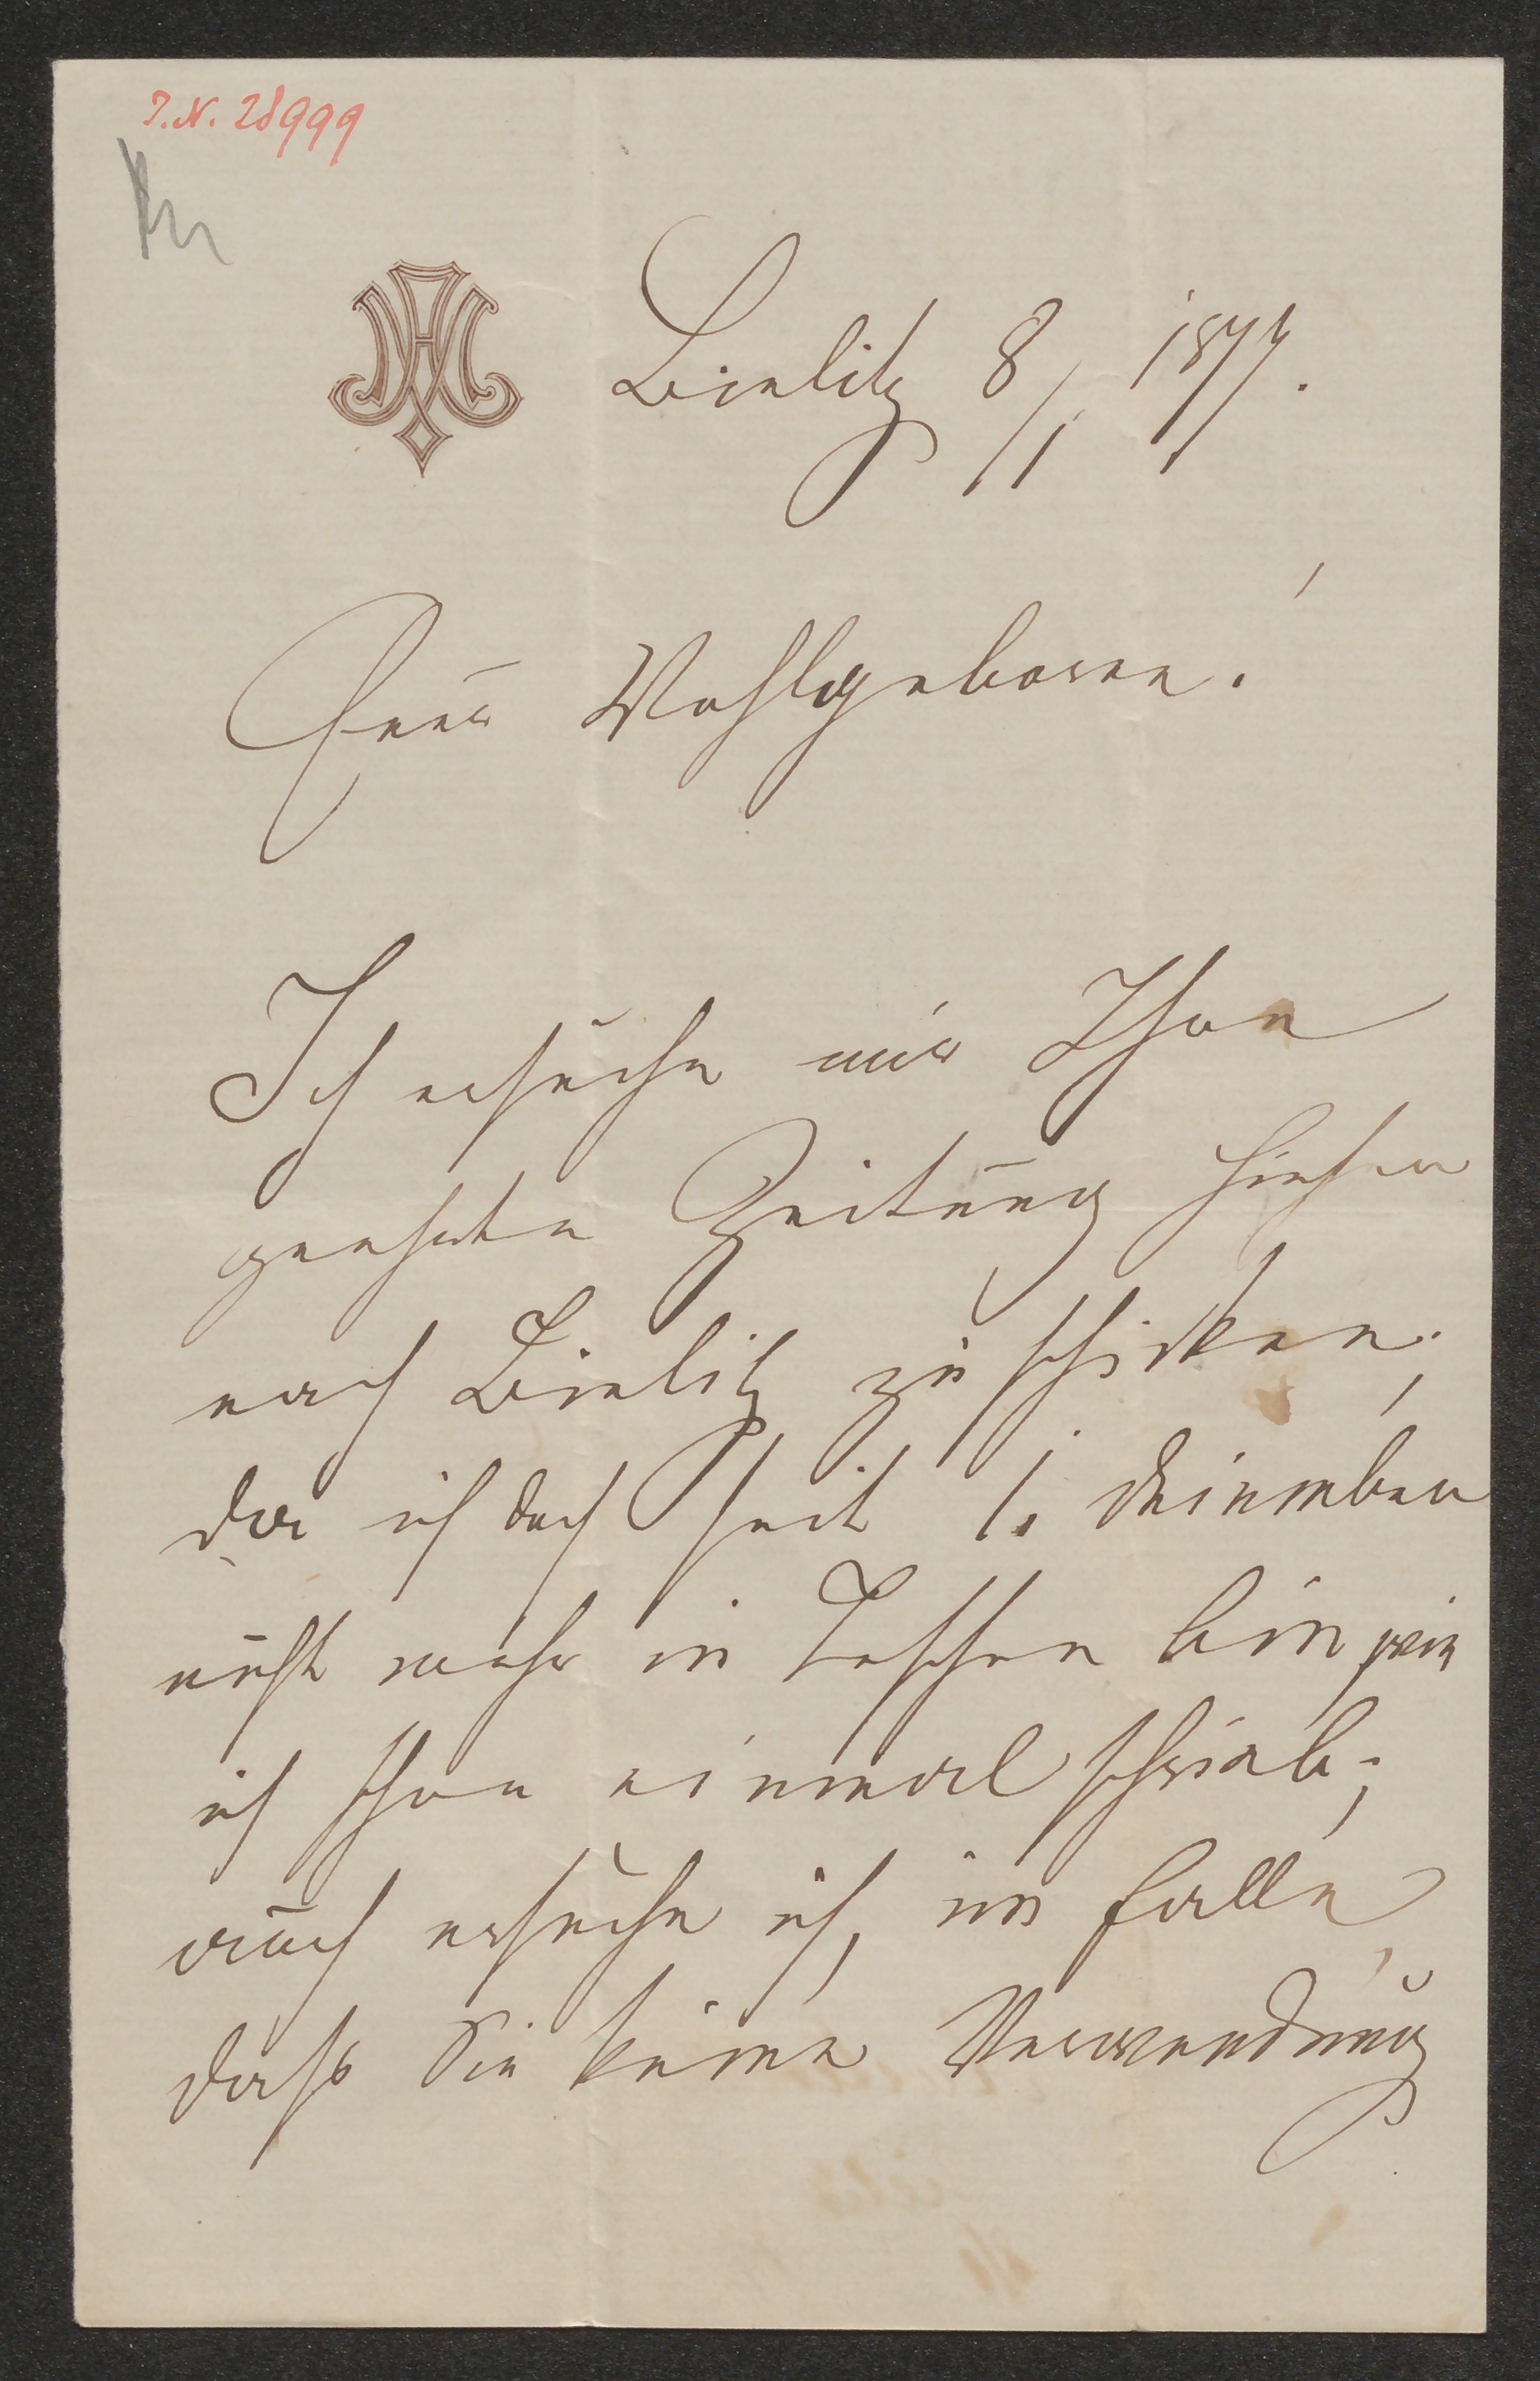 I.N. 28999
Bielitz 8/1 1877.
Euer Wohlgeboren!
Ich ersuche mir Ihre
geehrte Zeitung hieher
nach Bielitz zu schicken,
da ich doch seit 1. Dezember
nicht mehr in Teschen bin wie
ich schon einmal schrieb;
auch ersuche ich, im Falle,
dass Sie keine Verwendung